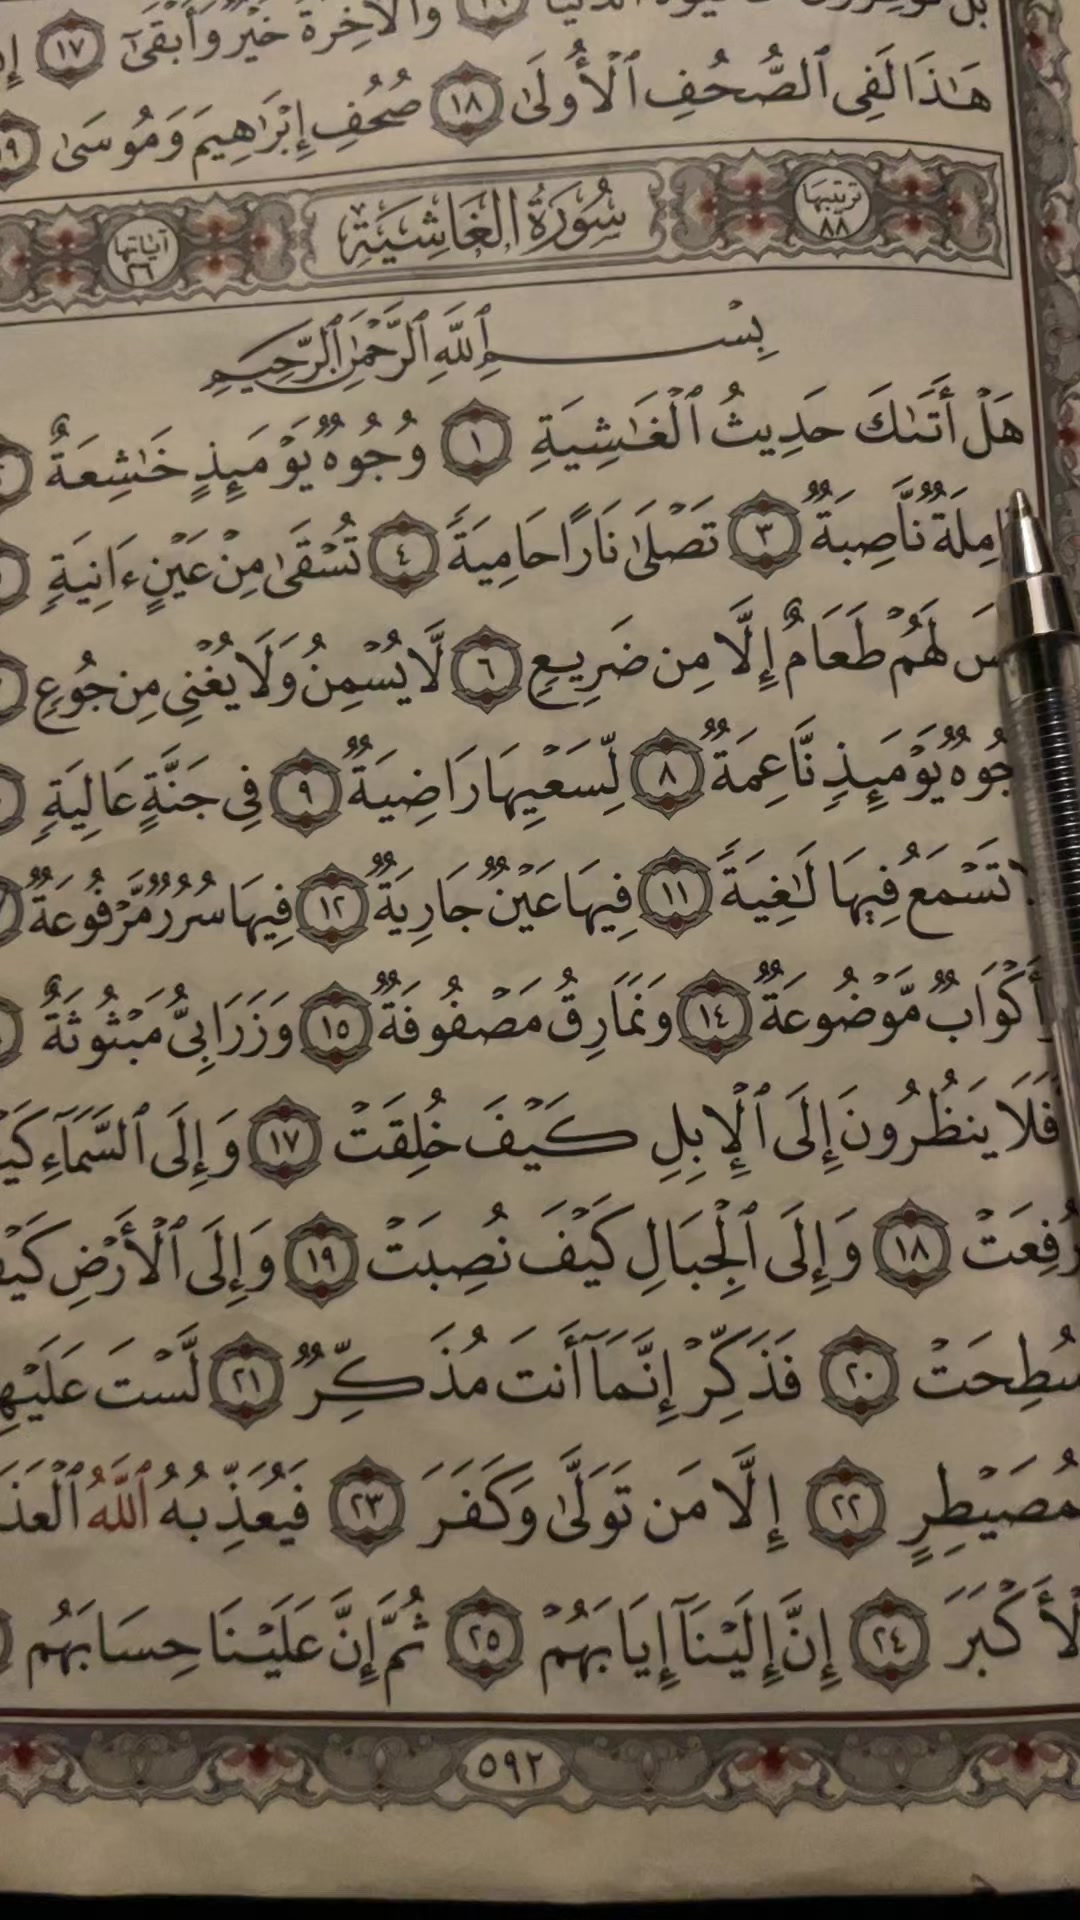 وَٱلۡأٓخِرَةُ خَيۡرٞ وَأَبۡقَىٰٓ ١٧
هَٰذَا لَفِي ٱلصُّحُفِ ٱلۡأُولَىٰ ١٨ صُحُفِ إِبۡرَٰهِيمَ وَمُوسَىٰ ١٩
ترتيبها ٨٨ سُورَةُ الغَاشِيَةِ آياتها ٢٦
بِسۡمِ ٱللَّهِ ٱلرَّحۡمَٰنِ ٱلرَّحِيمِ
هَلۡ أَتَىٰكَ حَدِيثُ ٱلۡغَٰشِيَةِ ١ وُجُوهٞ يَوۡمَئِذٍ خَٰشِعَةٌ
نَّاصِبَةٞ ٣ تَصۡلَىٰ نَارًا حَامِيَةٗ ٤ تُسۡقَىٰ مِنۡ عَيۡنٍ ءَانِيَةٖ
لَهُمۡ طَعَامٌ إِلَّا مِن ضَرِيعٖ ٦ لَّا يُسۡمِنُ وَلَا يُغۡنِي مِن جُوعٖ
يَوۡمَئِذٖ نَّاعِمَةٞ ٨ لِّسَعۡيِهَا رَاضِيَةٞ ٩ فِي جَنَّةٍ عَالِيَةٖ
تَسۡمَعُ فِيهَا لَٰغِيَةٗ ١١ فِيهَا عَيۡنٞ جَارِيَةٞ ١٢ فِيهَا سُرُرٞ مَّرۡفُوعَةٞ
أَكۡوَابٞ مَّوۡضُوعَةٞ ١٤ وَنَمَارِقُ مَصۡفُوفَةٞ ١٥ وَزَرَابِيُّ مَبۡثُوثَةٌ
فَلَا يَنظُرُونَ إِلَى ٱلۡإِبِلِ كَيۡفَ خُلِقَتۡ ١٧ وَإِلَى ٱلسَّمَآءِ
رُفِعَتۡ ١٨ وَإِلَى ٱلۡجِبَالِ كَيۡفَ نُصِبَتۡ ١٩ وَإِلَى ٱلۡأَرۡضِ كَيۡفَ
سُطِحَتۡ ٢٠ فَذَكِّرۡ إِنَّمَآ أَنتَ مُذَكِّرٞ ٢١ لَّسۡتَ عَلَيۡهِم
بِمُصَيۡطِرٍ ٢٢ إِلَّا مَن تَوَلَّىٰ وَكَفَرَ ٢٣ فَيُعَذِّبُهُ ٱللَّهُ ٱلۡعَذَابَ
ٱلۡأَكۡبَرَ ٢٤ إِنَّ إِلَيۡنَآ إِيَابَهُمۡ ٢٥ ثُمَّ إِنَّ عَلَيۡنَا حِسَابَهُم
٥٩٢